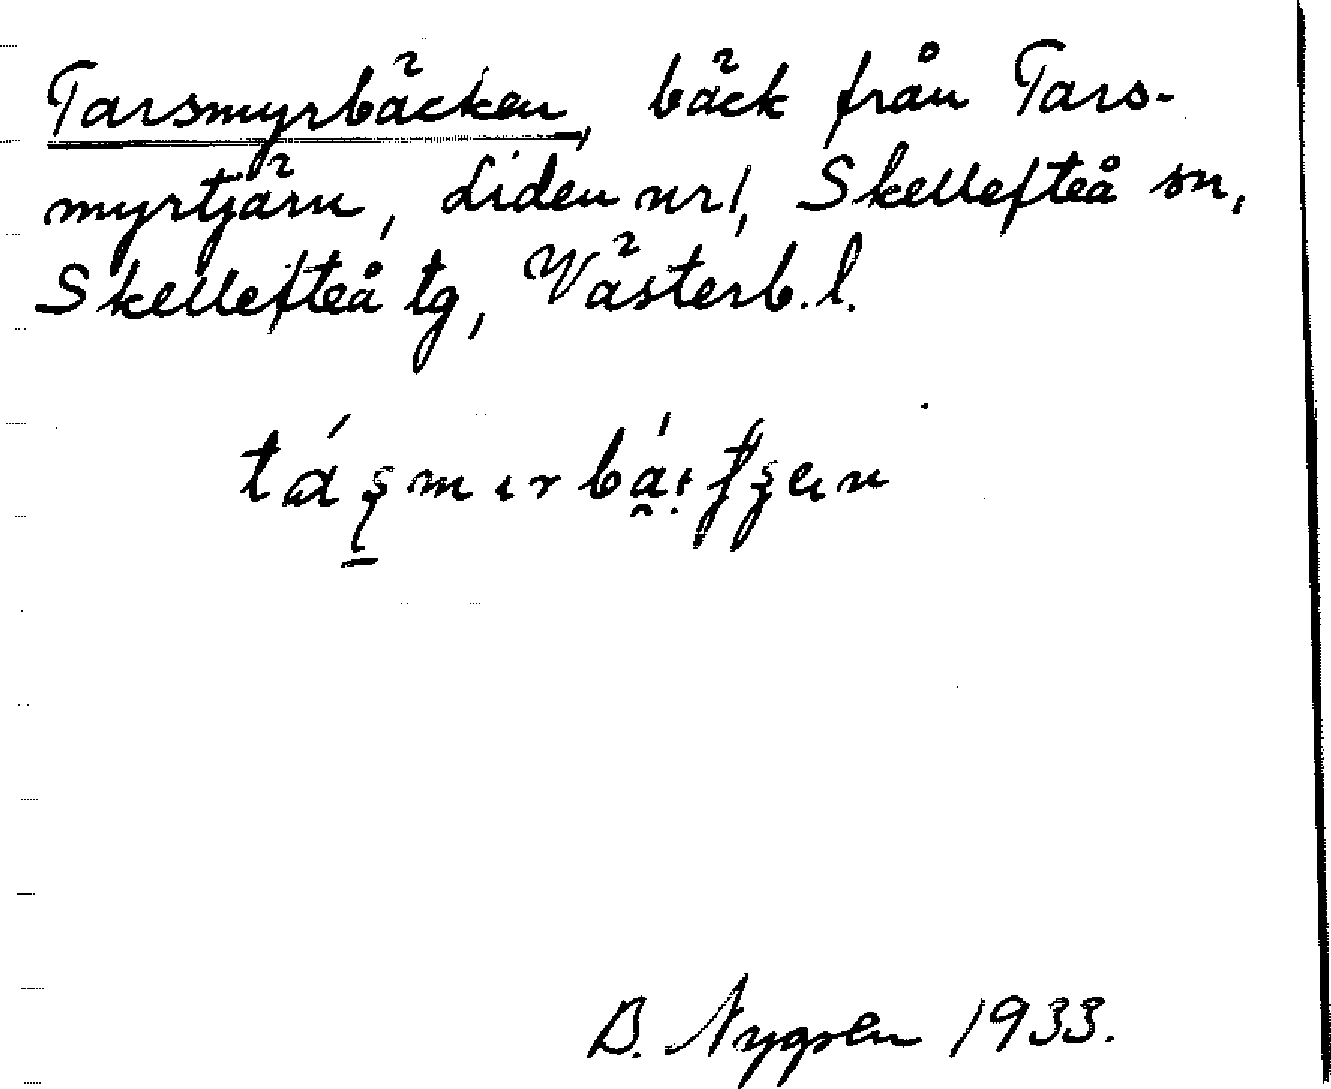 Tarsmyrbäcken, bäck från Tars-
myrtjärn, Liden nr 1, Skellefteå sn,
Skellefteå tg, Västerb. l.
B. Nygren 1933.